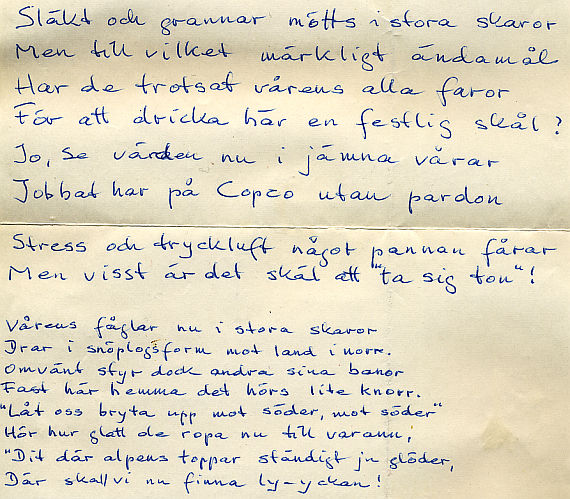 Släkt och grannar mötts i stora skaror
Men till vilket märkligt ändamål
Har de trotsat vårens alla faror
För att dricka här en festlig skål?
Jo, se värden nu i jämna vårar
Jobbat har på Copco utan pardon
Stress och tryckluft något pannan fårar
Men visst är det skäl att "ta sig ton"!
Vårens fåglar nu i stora skaror
Drar i snöplogsform mot land i norr.
Omvänt styr dock andra sina banor
Fast här hemma det hörs lite knorr.
"Låt oss bryta upp mot söder, mot söder"
Hör hur glatt de ropa nu till varann,
"Dit där alpens toppar ständigt ju glöder,
Där skall vi nu finna ly-yckan!